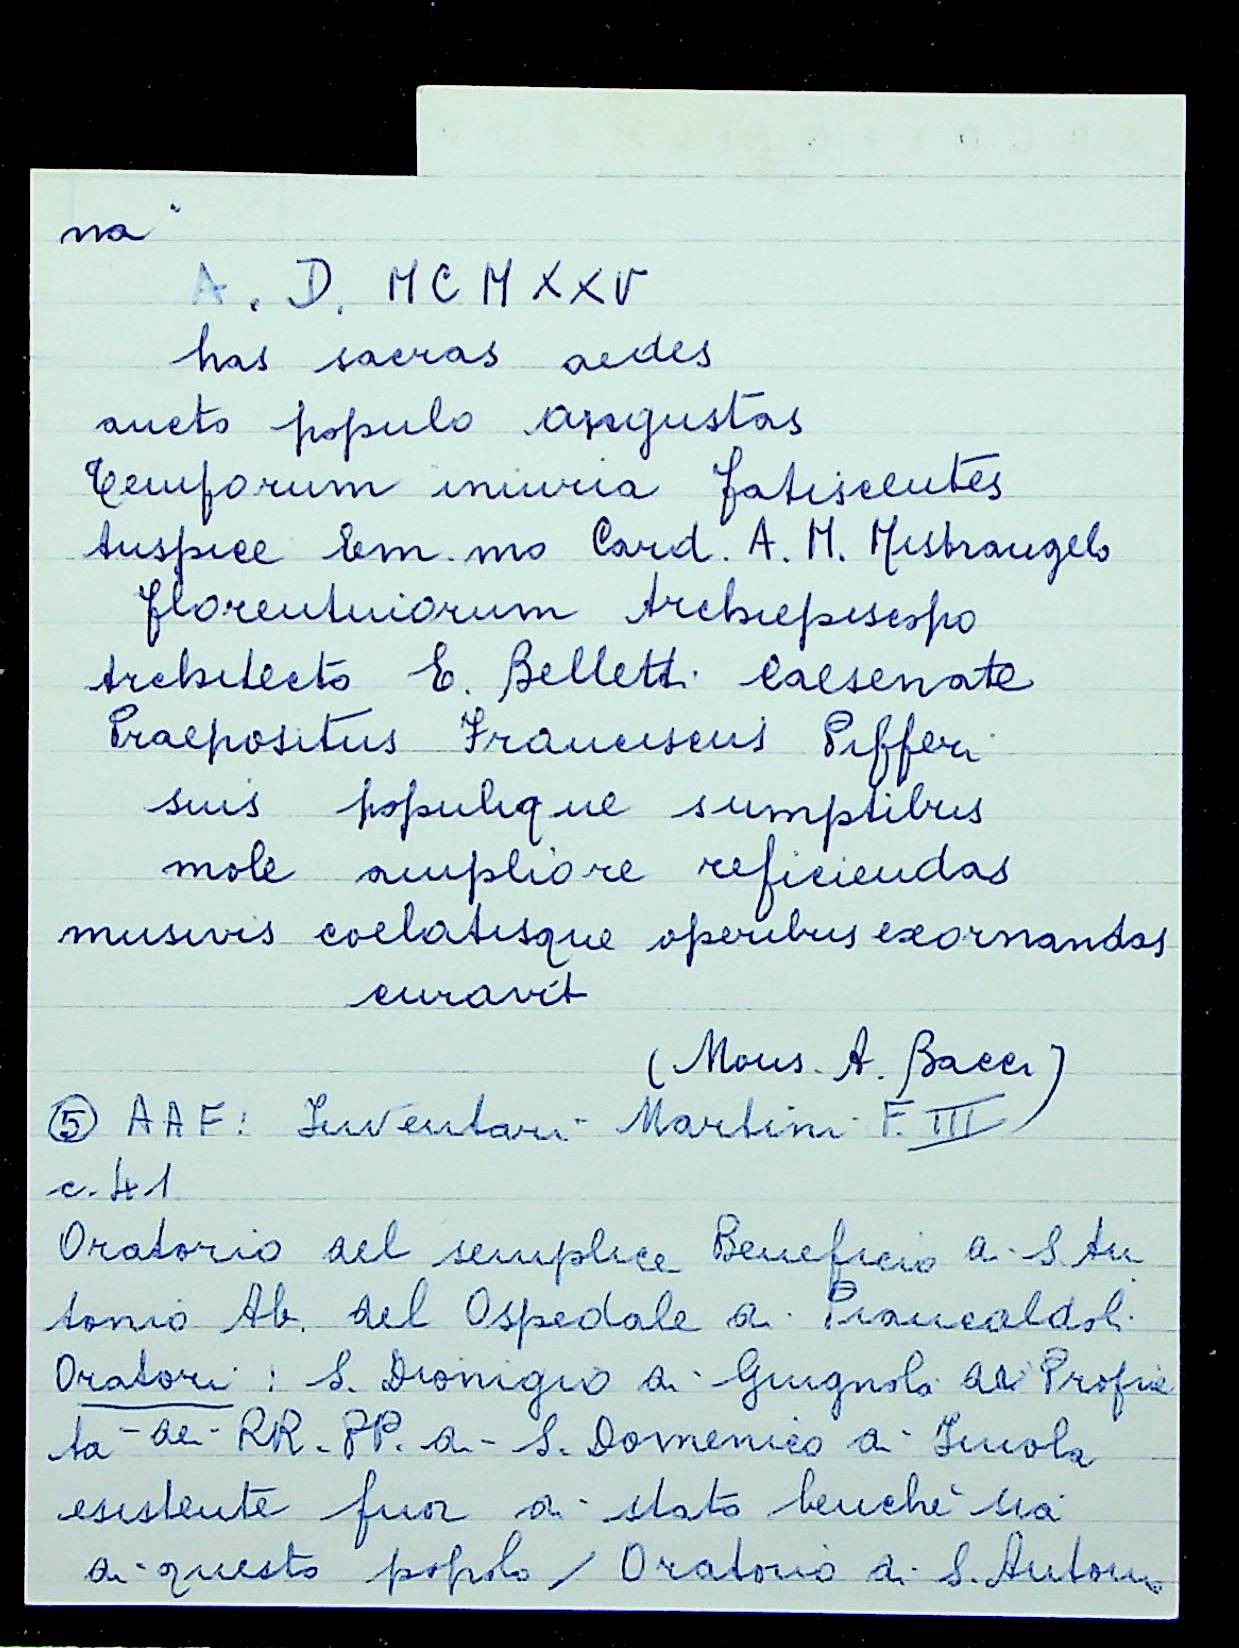 na"
A. D. MCMXXV
has sacras aedes
aucto populo angustas
temporum iniuria fatiscentes
Auspice Em.mo Card. A. M. Mistrangelo
Florentinorum Archiepiscopo
Architecto E. Belletti Caesenate
Praepositus Franciscus Pifferi
suis populique sumptibus
mole ampliore reficiendas
musivis coelatisque operibus exornandas
curavit
(Mons. A. Bacci)
⑤ AAF: Inventari Martini F. III)
c. 41
Oratorio del semplice Beneficio di S. An
tonio Ab. del Ospedale di Piancaldoli
Oratori: S. Dionigio di Giugnola di Proprie
tà dei RR. PP. di S. Domenico di Imola
esistente fuor di stato benchè sia
di questo popolo / Oratorio di S. Antonio